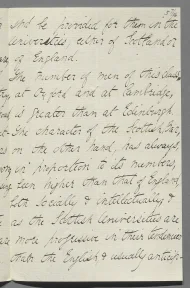 and be provided for them in the
Universities either of Scotland or
of England.
The number of men of this class
at Oxford and at Cambridge,
is greater than at Edinburgh.
The character of the Scottish Bar,
on the other hand, has always,
in proportion to its numbers,
been higher than that of England,
both socially & intellectually &
as the Scottish Universities are
more progressive in their tendencies
than the English & usually antici-